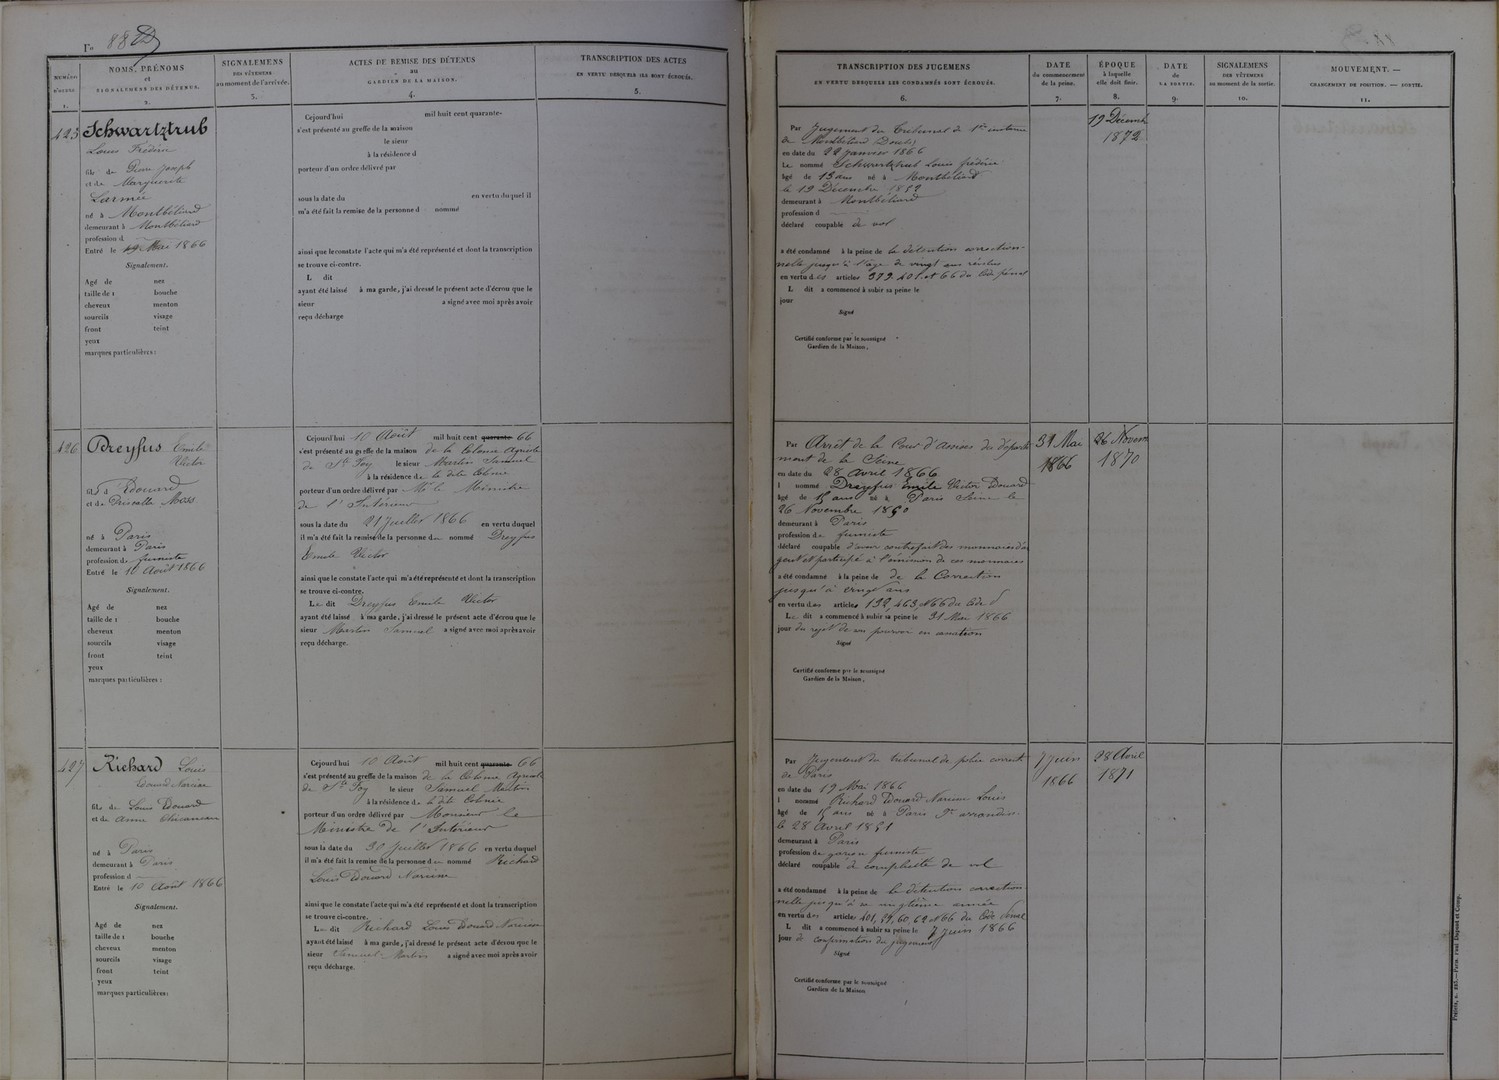 Fo 882
NUMÉRO D'ORDRE 1.
NOMS, PRÉNOMS et SIGNALEMENS DES DÉTENUS. 2.
SIGNALEMENS DES VÊTEMENS au moment de l'arrivée. 3.
ACTES DE REMISE DES DÉTENUS au GARDIEN DE LA MAISON. 4.
TRANSCRIPTION DES ACTES EN VERTU DESQUELS ILS SONT ÉCROUÉS. 5.
425 Schwartztrub
Louis Frédéric
fils de Pierre Joseph
et de Marguerite
Larmée
né à Montbéliard
demeurant à Montbéliard
profession d
Entré le 19 Mai 1866
Signalement.
Agé de nez
taille de 1 bouche
cheveux menton
sourcils visage
front teint
yeux
marques particulières :
Cejourd'hui mil huit cent quarante-
s'est présenté au greffe de la maison
le sieur
à la résidence d
porteur d'un ordre délivré par
sous la date du en vertu duquel il
m'a été fait la remise de la personne d nommé
ainsi que le constate l'acte qui m'a été représenté et dont la transcription
se trouve ci-contre.
L dit
ayant été laissé à ma garde, j'ai dressé le présent acte d'écrou que le
sieur a signé avec moi après avoir
reçu décharge
426 Dreyfus Emile
Victor
fils d Edouard
et de Priscille Moss
né à Paris
demeurant à Paris
profession de fumiste
Entré le 10 Août 1866
Signalement.
Agé de nez
taille de 1 bouche
cheveux menton
sourcils visage
front teint
yeux
marques particulières :
Cejourd'hui 10 Août mil huit cent quarante- 66
s'est présenté au greffe de la maison de la Colonie Agricole
de Ste Foy le sieur Martin Samuel
à la résidence de la dite Colonie
porteur d'un ordre délivré par Mr le Ministre
de l'Intérieur
sous la date du 21 Juillet 1866 en vertu duquel
il m'a été fait la remise de la personne d nommé Dreyfus
Emile Victor
ainsi que le constate l'acte qui m'a été représenté et dont la transcription
se trouve ci-contre.
Le dit Dreyfus Emile Victor
ayant été laissé à ma garde, j'ai dressé le présent acte d'écrou que le
sieur Martin Samuel a signé avec moi après avoir
reçu décharge.
427 Richard Louis
Edouard Narcisse
fils de Louis Edouard
et de Anne Chicaneau
né à Paris
demeurant à Paris
profession d
Entré le 10 Août 1866
Signalement.
Agé de nez
taille de 1 bouche
cheveux menton
sourcils visage
front teint
yeux
marques particulières :
Cejourd'hui 10 Août mil huit cent quarante- 66
s'est présenté au greffe de la maison de la Colonie Agricole
de Ste Foy le sieur Samuel Martin
à la résidence de la dite Colonie
porteur d'un ordre délivré par Monsieur le
Ministre de l'Intérieur
sous la date du 30 Juillet 1866 en vertu duquel
il m'a été fait la remise de la personne d nommé Richard
Louis Edouard Narcisse
ainsi que le constate l'acte qui m'a été représenté et dont la transcription
se trouve ci-contre.
Le dit Richard Louis Edouard Narcisse
ayant été laissé à ma garde, j'ai dressé le présent acte d'écrou que le
sieur Samuel Martin a signé avec moi après avoir
reçu décharge.
TRANSCRIPTION DES JUGEMENS EN VERTU DESQUELS LES CONDAMNÉS SONT ÉCROUÉS. 6.
DATE du commencement de la peine. 7.
ÉPOQUE à laquelle elle doit finir. 8.
DATE de LA SORTIE. 9.
SIGNALEMENS DES VÊTEMENS au moment de la sortie. 10.
MOUVEMENT. — CHANGEMENT DE POSITION. — SORTIE. 11.
Par Jugement du Tribunal de 1re instance
de Montbéliard (Doubs)
en date du 22 Janvier 1866
Le nommé Schwartztrub Louis Frédéric
âgé de 13 ans né à Montbéliard
le 19 Décembre 1852
demeurant à Montbéliard
profession d
déclaré coupable de vol
a été condamné à la peine de la détention correction-
nelle jusqu'à l'âge de vingt ans révolus
en vertu des articles 379, 401 et 66 du Code pénal
L dit a commencé à subir sa peine le
jour
Signé
Certifié conforme par le soussigné
Gardien de la Maison,
19 Décembre
1872
Par Arrêt de la Cour d'Assises du départe
ment de la Seine
en date du 28 Avril 1866
l nommé Dreyfus Emile Victor Edouard
âgé de 15 ans né à Paris Seine le
26 Novembre 1850
demeurant à Paris
profession de fumiste
déclaré coupable d'avoir contrefait des monnaies d'ar
gent et participé à l'émission de ces monnaies
a été condamné à la peine de de la Correction
jusqu'à vingt ans
en vertu des articles 132, 463, et 66 du Code
Le dit a commencé à subir sa peine le 31 Mai 1866
jour du rejet de son pourvoi en cassation
Signé
Certifié conforme par le soussigné
Gardien de la Maison,
31 Mai
1866
26 Novem
1870
Par Jugement du tribunal de police correcte
de Paris
en date du 19 Mai 1866
l nommé Richard Edouard Narcisse Louis
âgé de 15 ans né à Paris arrondiss.
le 28 Avril 1851
demeurant à Paris
profession de garçon fumiste
déclaré coupable de complicité de vol
a été condamné à la peine de la détention correction
nelle jusqu'à sa vingtième année
en vertu des articles 401, 59, 60, 62 et 66 du Code Pénal
L dit a commencé à subir sa peine le 7 juin 1866
jour de confirmation du jugement
Signé
Certifié conforme par le soussigné
Gardien de la Maison
7 juin
1866
28 Avril
1871